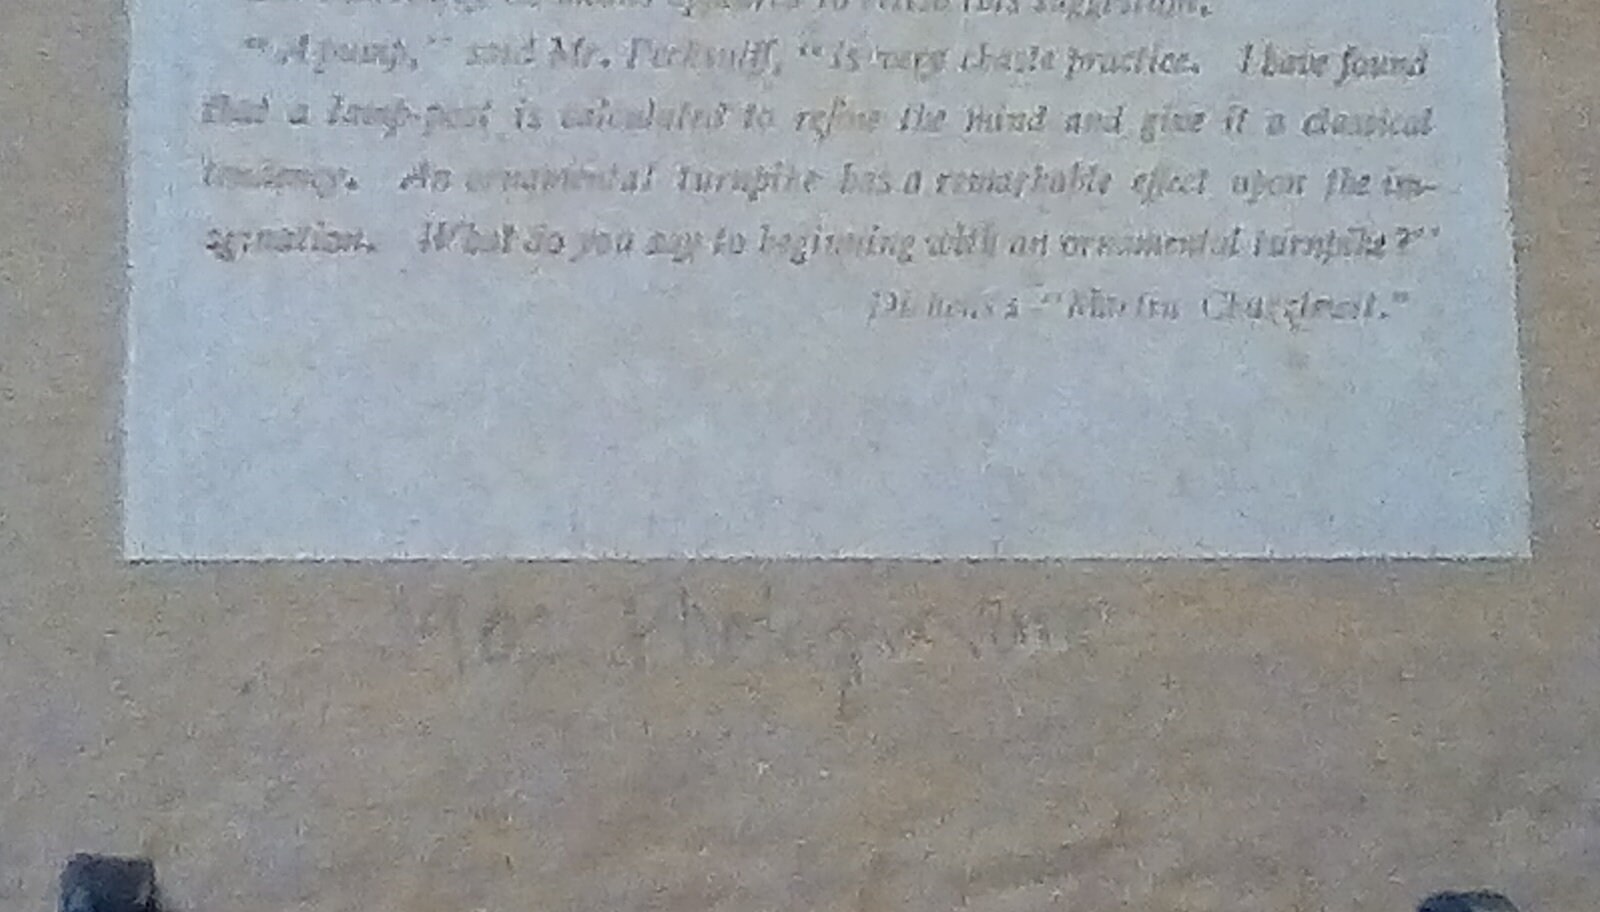 to this suggestion.
"A pump," said Mr. Pecksniff, "is very chaste practice. I have found
that a lamp-post is calculated to refine the mind and give it a classical
tendency. An ornamental turnpike has a remarkable effect upon the im-
agination. What do you say to beginning with an ornamental turnpike?"
Dickens's "Martin Chuzzlewit."